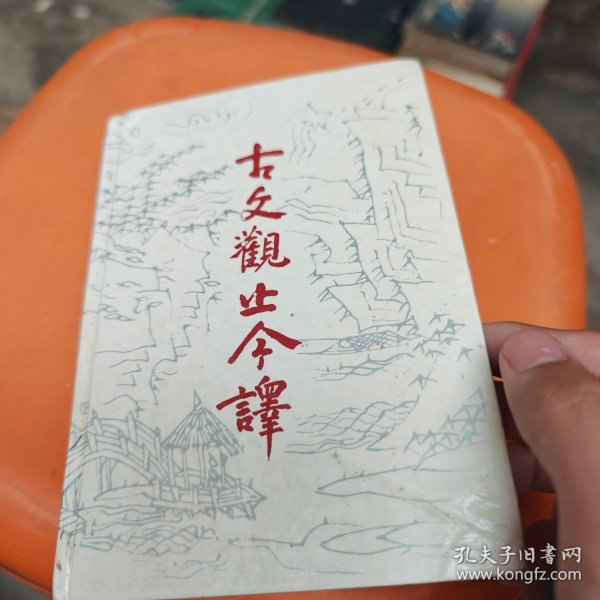 古文觀止今譯
孔夫子旧书网
www.kongfz.com